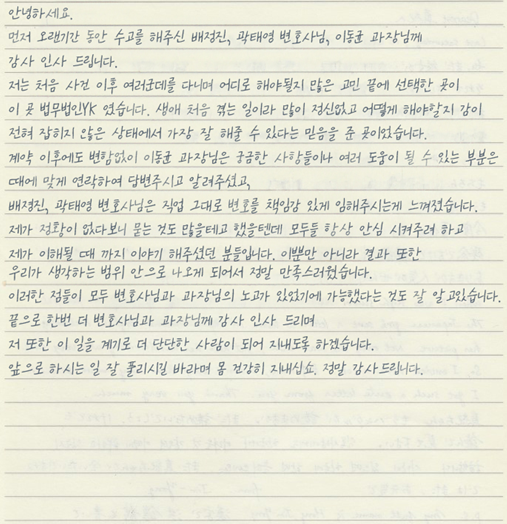 안녕하세요.
먼저 오랜기간 동안 수고를 해주신 배정진, 곽태영 변호사님, 이동균 과장님께
감사 인사 드립니다.
저는 처음 사건 이후 여러군데를 다니며 어디로 해야될지 많은 고민 끝에 선택한 곳이
이 곳 법무법인YK 였습니다. 생애 처음 겪는 일이라 많이 정신없고 어떻게 해야할지 감이
전혀 잡히지 않은 상태에서 가장 잘 해줄 수 있다는 믿음을 준 곳이었습니다.
계약 이후에도 변함없이 이동균 과장님은 궁금한 사항들이나 여러 도움이 될 수 있는 부분은
때에 맞게 연락하여 답변주시고 알려주셨고,
배정진, 곽태영 변호사님은 직업 그대로 변호를 책임감 있게 임해주시는게 느껴졌습니다.
제가 정황이 없다보니 묻는 것도 많을테고 했을텐데 모두들 항상 안심 시켜주려 하고
제가 이해될 때 까지 이야기 해주셨던 분들입니다. 이뿐만 아니라 결과 또한
우리가 생각하는 범위 안으로 나오게 되어서 정말 만족스러웠습니다.
이러한 점들이 모두 변호사님과 과장님의 노고가 있었기에 가능했다는 것도 잘 알고있습니다.
끝으로 한번 더 변호사님과 과장님께 감사 인사 드리며
저 또한 이 일을 계기로 더 단단한 사람이 되어 지내도록 하겠습니다.
앞으로 하시는 일 잘 풀리시길 바라며 몸 건강히 지내십쇼. 정말 감사드립니다.